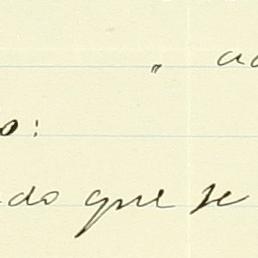 " ad
o:
do que se